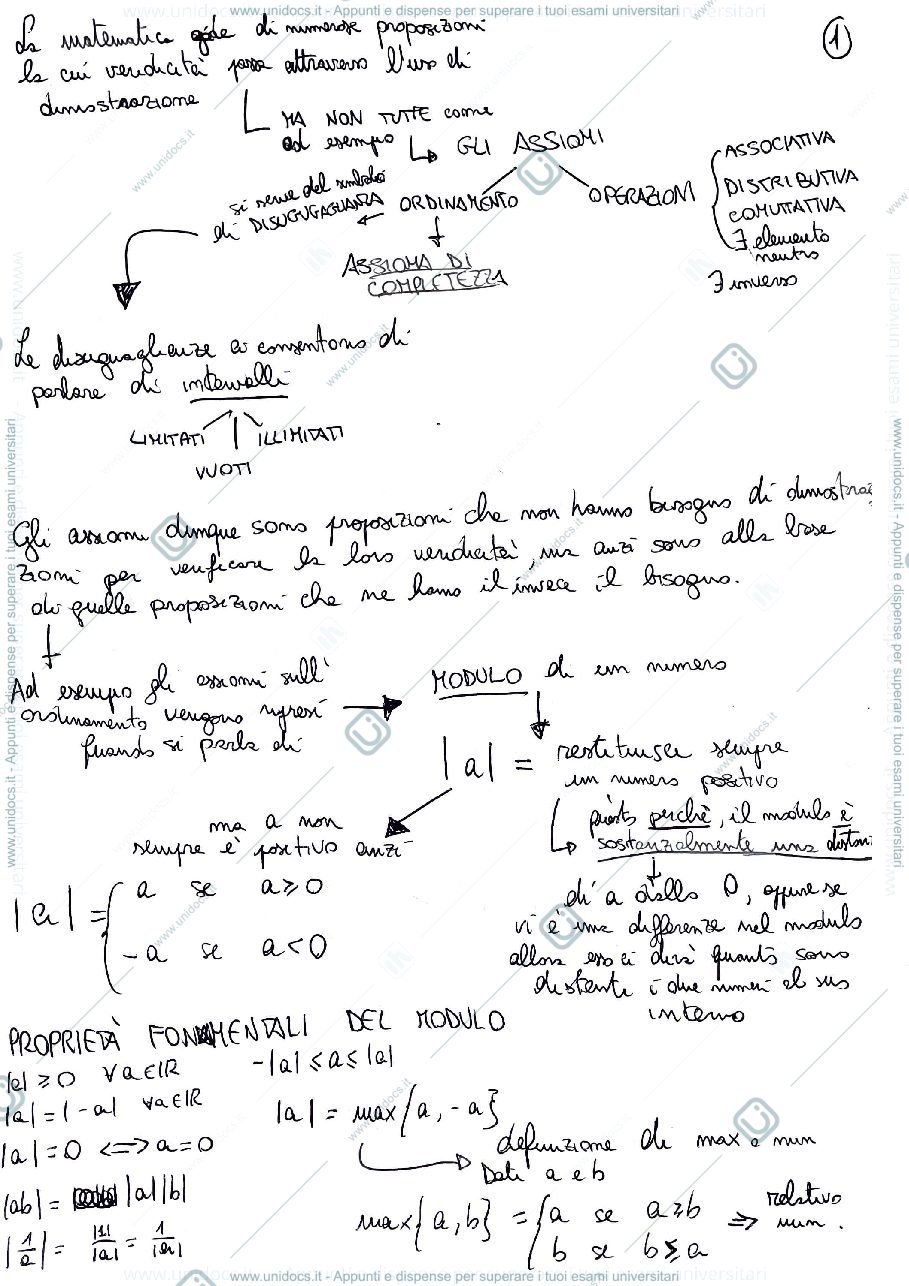 www.unidocs.it - Appunti e dispense per superare i tuoi esami universitari
1
La matematica gode di numerose proposizioni
la cui veridicità passa attraverso l'uso di
dimostrazione
MA NON TUTTE come
ad esempio → GLI ASSIOMI
ORDINAMENTO
OPERAZIONI
ASSOCIATIVA
DISTRIBUTIVA
COMUTATIVA
∃ elemento
neutro
∃ inverso
si serve del simbolo
di DISUGUGAGLIANZA
ASSIOMA DI
COMPLETEZZA
Le diseguaglianze ci consentono di
parlare di intervalli
LIMITATI
ILLIMITATI
VUOTI
Gli assiomi dunque sono proposizioni che non hanno bisogno di dimostra
zioni per verificare la loro veridicità, ma anzi sono alla base
di quelle proposizioni che ne hanno il invece il bisogno.
Ad esempio gli assiomi sull'
ordinamento vengono ripresi
quando si parla di
MODULO di un numero
|a| = restituisce sempre
un numero positivo
questo perchè, il modulo è
sostanzialmente una distan
di a dallo 0, oppure se
vi è una differenza nel modulo
allora esso ci dirà quanto sono
distanti i due numeri al suo
interno
ma a non
sempre è positivo anzi
|a| = { a se a ≥ 0
-a se a < 0
PROPRIETÀ FONDAMENTALI DEL MODULO
|a| ≥ 0 ∀ a ∈ IR
-|a| ≤ a ≤ |a|
|a| = |-a| ∀ a ∈ IR
|a| = max{a, -a}
|a| = 0 <=> a = 0
definizione di max e min
Dati a e b
|ab| = |a||b|
max{a, b} = { a se a ≥ b
b se b ≥ a
=> relativo
min.
|1/a| = |1|/|a| = 1/|a|
www.unidocs.it - Appunti e dispense per superare i tuoi esami universitari